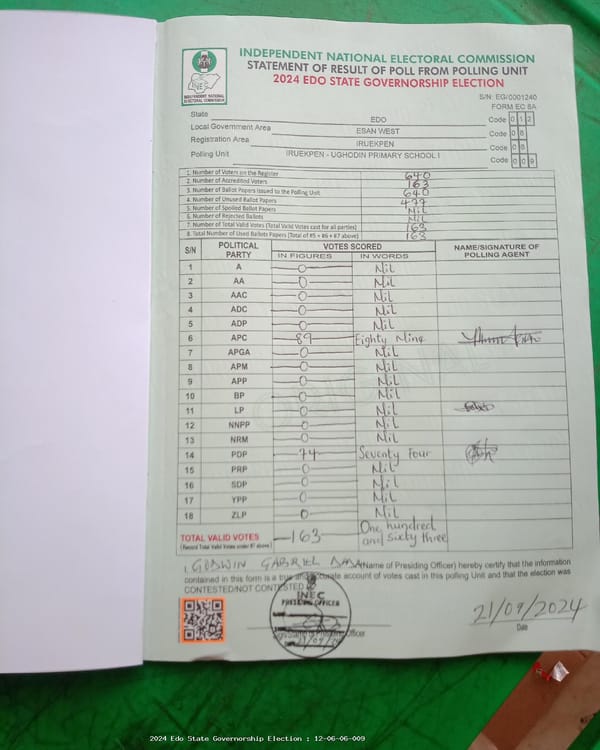 INDEPENDENT NATIONAL ELECTORAL COMMISSION
STATEMENT OF RESULT OF POLL FROM POLLING UNIT
2024 EDO STATE GOVERNORSHIP ELECTION
INEC
INDEPENDENT NATIONAL ELECTORAL COMMISSION
S/N: EG/0001240
FORM EC 8A
State EDO Code 0 1 2
Local Government Area ESAN WEST Code 0 6
Registration Area IRUEKPEN Code 0 6
Polling Unit IRUEKPEN - UGHODIN PRIMARY SCHOOL I Code 0 0 9
1. Number of Voters on the Register 640
2. Number of Accredited Voters 163
3. Number of Ballot Papers Issued to the Polling Unit 640
4. Number of Unused Ballot Papers 477
5. Number of Spoiled Ballot Papers Nil
6. Number of Rejected Ballots Nil
7. Number of Total Valid Votes (Total Valid Votes cast for all parties) 163
8. Total Number of Used Ballots Papers (Total of #5 + #6 + #7 above) 163
S/N POLITICAL PARTY VOTES SCORED NAME/SIGNATURE OF POLLING AGENT
IN FIGURES IN WORDS
1 A 0 Nil
2 AA 0 Nil
3 AAC 0 Nil
4 ADC 0 Nil
5 ADP 0 Nil
6 APC 89 Eighty Nine
7 APGA 0 Nil
8 APM 0 Nil
9 APP 0 Nil
10 BP 0 Nil
11 LP 0 Nil
12 NNPP 0 Nil
13 NRM 0 Nil
14 PDP 74 Seventy Four
15 PRP 0 Nil
16 SDP 0 Nil
17 YPP 0 Nil
18 ZLP 0 Nil
TOTAL VALID VOTES 163 One hundred and sixty three
(Record Total Valid Votes under #7 above)
I, GODWIN GABRIEL (Name of Presiding Officer) hereby certify that the information
contained in this form is a true and accurate account of votes cast in this polling Unit and that the election was
CONTESTED/NOT CONTESTED
INEC
PRESIDING OFFICER
21/09/2024
Date
2024 Edo State Governorship Election : 12-06-06-009